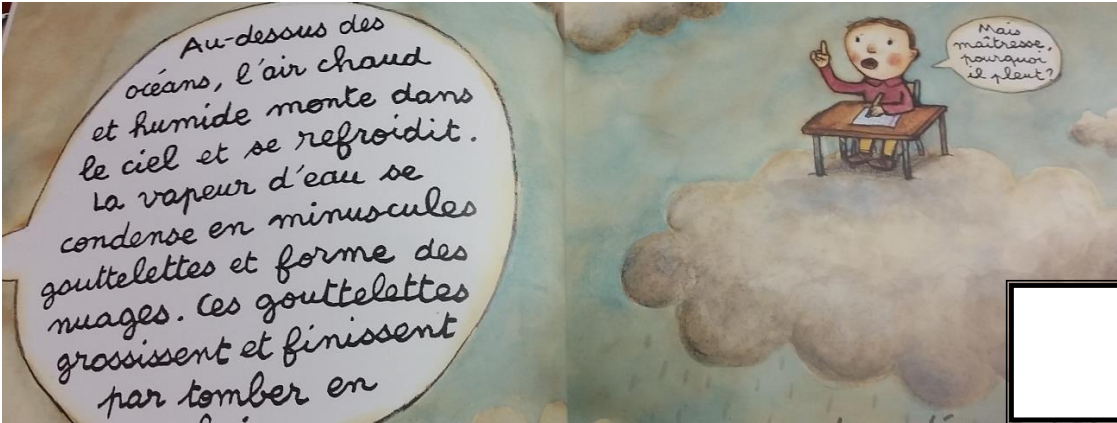 Au-dessus des
océans, l'air chaud
et humide monte dans
le ciel et se refroidit.
La vapeur d'eau se
condense en minuscules
gouttelettes et forme des
nuages. Ces gouttelettes
grossissent et finissent
par tomber en
Mais
maîtresse,
pourquoi
il pleut?